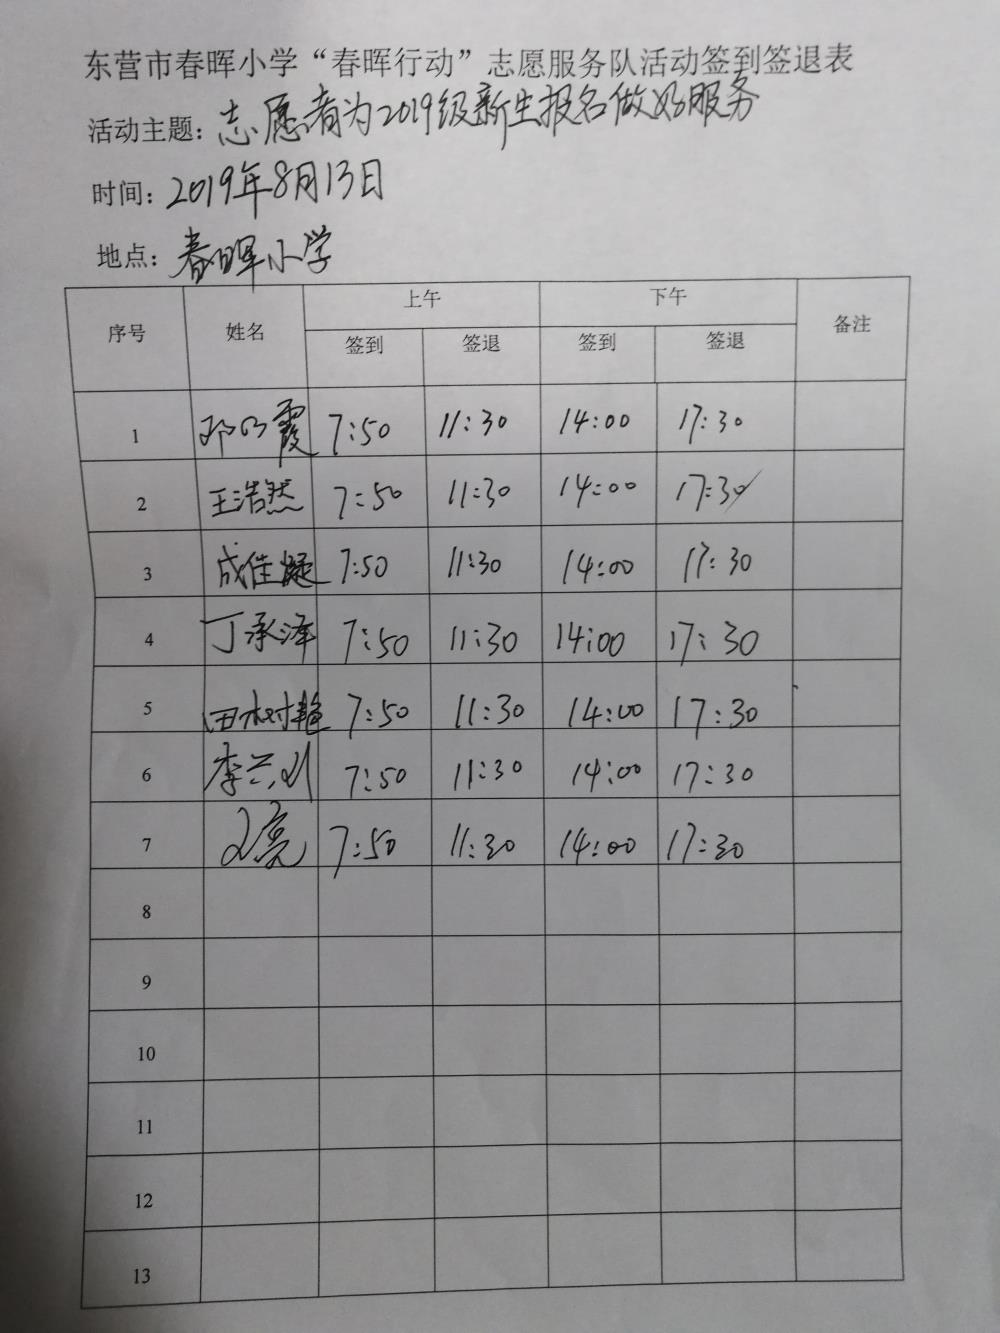 东营市春晖小学“春晖行动”志愿服务队活动签到签退表
活动主题：志愿者为2019级新生报名做好服务
时间：2019年8月13日
地点：春晖小学
序号 姓名 上午 下午 备注
签到 签退 签到 签退
1 7:50 11:30 14:00 17:30
2 王浩然 7:50 11:30 14:00 17:30
3 成佳凝 7:50 11:30 14:00 17:30
4 丁承泽 7:50 11:30 14:00 17:30
5 田树艳 7:50 11:30 14:00 17:30
6 7:50 11:30 14:00 17:30
7 7:50 11:30 14:00 17:30
8
9
10
11
12
13